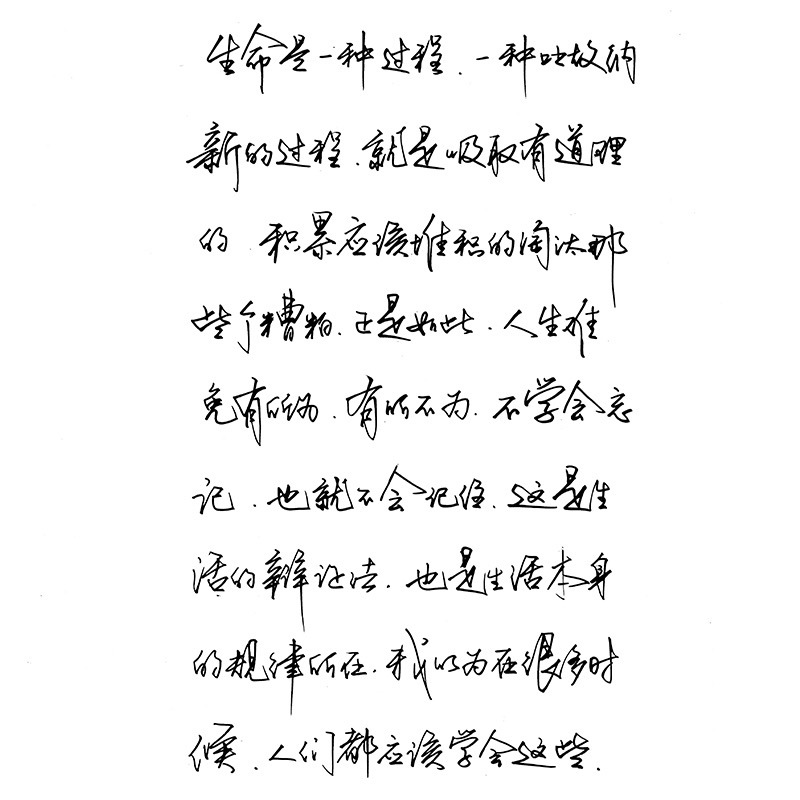 生命是一种过程.一种吐故纳
新的过程.就是吸取有道理
的 积累应该堆积的淘汰那
些个糟粕.正是如此.人生难
免有所为.有所不为.不学会忘
记.也就不会记住.这是生
活的辩证法.也是生活本身
的规律所在.我以为在很多时
候.人们都应该学会这些.